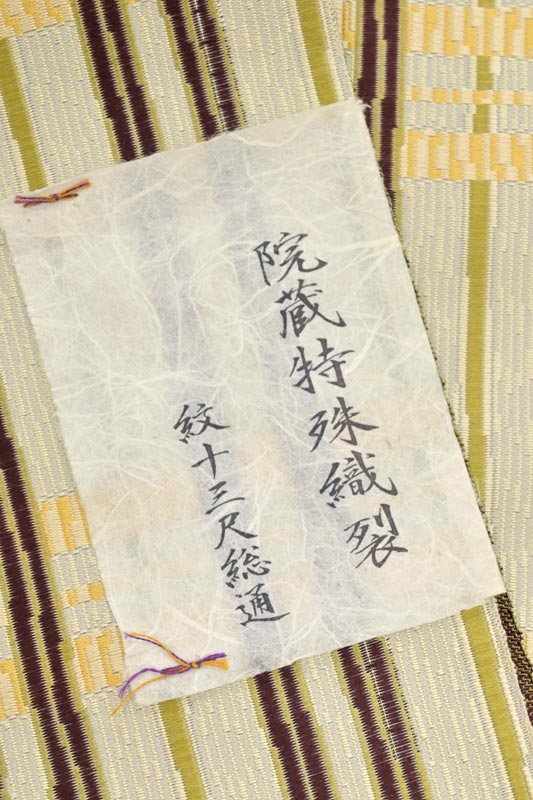 院蔵特殊織裂
紋十三尺総通